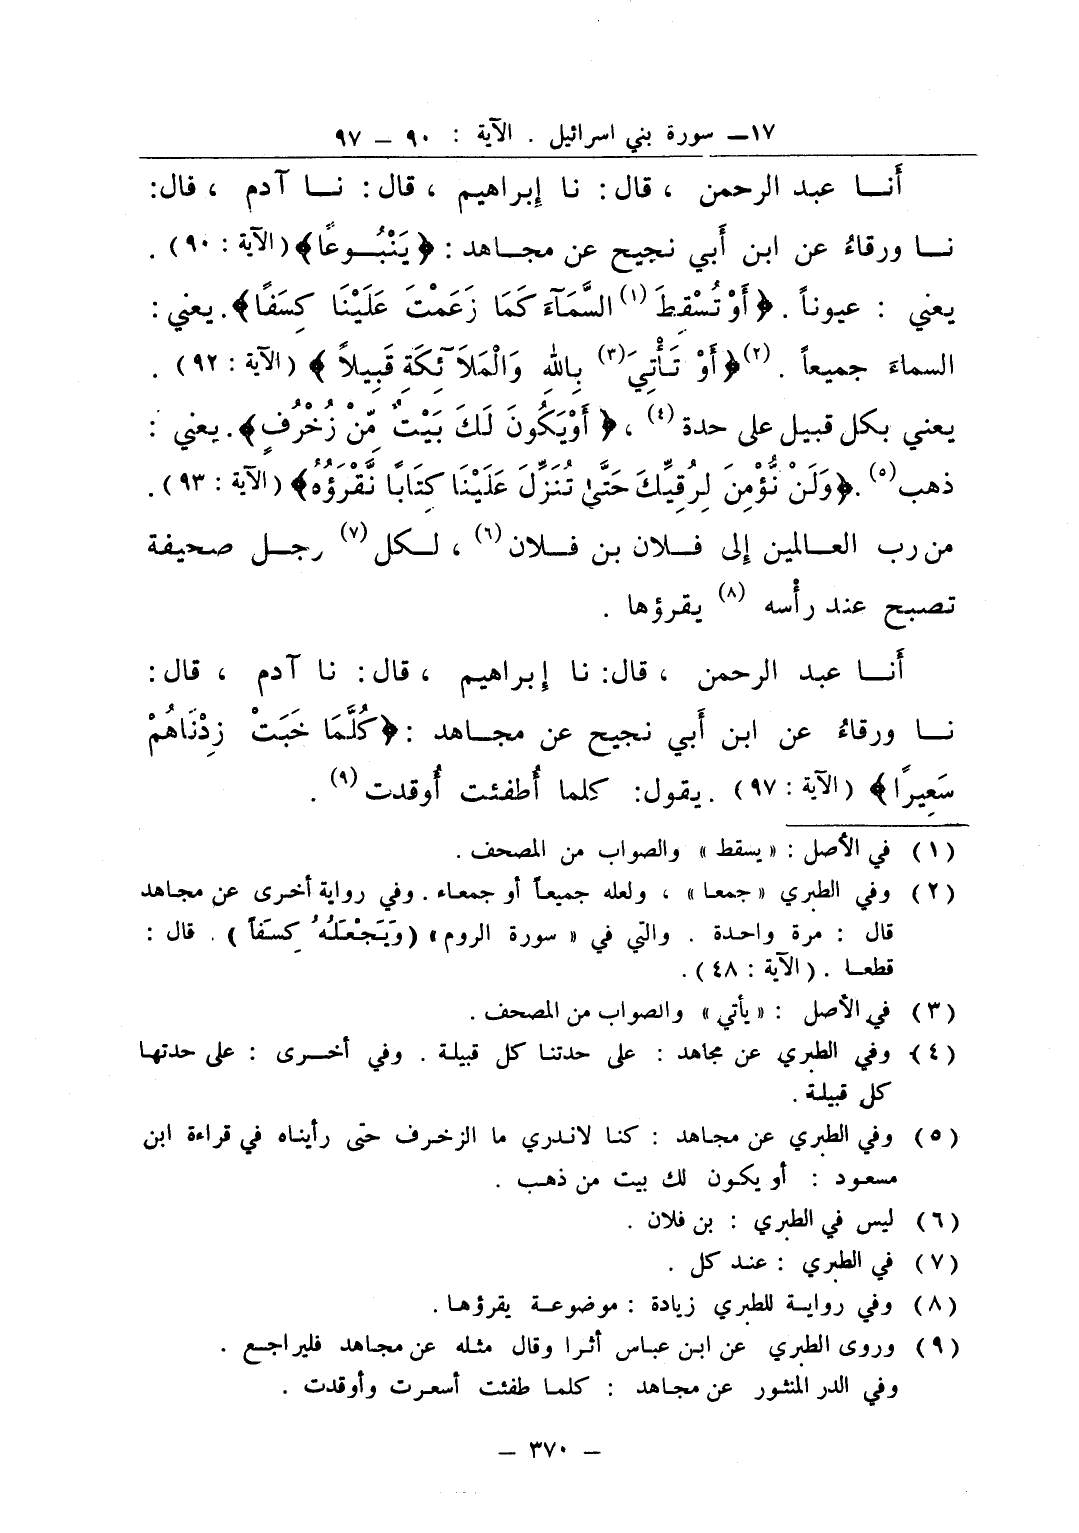 ١٧ــ سورة بني اسرائيل . الآية : ٩٠ ــ ٩٧
أَنــا عبد الرحمن ، قال: نا إبراهيم ، قال: نــا آدم ، قال:
نــا ورقاءُ عن ابن أَبي نجيح عن مجــاهد : ﴿ يَنْبُــوعًا﴾(الآية : ٩٠) .
يعني : عيوناً . ﴿ أَوْ تُسْقِطَ (١) السَّمَآءَ كَمَا زَعَمْتَ عَلَيْنَا كِسَفًا﴾. يعني :
السماءَ جميعاً . (٢)﴿ أَوْ تَأْتِيَ(٣) بِاللهِ وَالْمَلَآئِكَةِ قَبِيلاً ﴾ (الآية : ٩٢) .
يعني بكل قبيل على حدة (٤) ، ﴿ أَوْيَكُونَ لَكَ بَيْتٌ مِّنْ زُخْرُفٍ﴾. يعني :
ذهب(٥) .﴿وَلَنْ نُّؤْمِنَ لِرُقِيِّكَ حَتَّىٰ تُنَزِّلَ عَلَيْنَا كِتَابًا نَّقْرَؤُهُ﴾ (الآية : ٩٣).
من رب العــالمين إلى فــلان بن فــلان (٦) ، لــكل (٧) رجــل صحيفة
تصبح عند رأْسه (٨) يقرؤها .
أَنــا عبد الرحمن ، قال: نا إبراهيم ، قال: نا آدم ، قال:
نــا ورقاءُ عن ابن أَبي نجيح عن مجــاهد : ﴿كُلَّمَا خَبَتْ زِدْنَاهُمْ
سَعِيرًا﴾ (الآية : ٩٧) . يقول: كلما أُطفئت أُوقدت (٩) .
(١) في الأصل : « يسقط » والصواب من المصحف .
(٢) وفي الطبري « جمعا » ، ولعله جميعاً أو جمعاء . وفي رواية أخرى عن مجاهد
قال : مرة واحدة . والتي في « سورة الروم » (وَيَجْعَلُهُ كِسَفاً ) . قال :
قطعــا . (الآية : ٤٨) .
(٣) في الأصل : « يأتي » والصواب من المصحف .
(٤) وفي الطبري عن مجاهد : على حدتنا كل قبيلة . وفي أخــرى : على حدتها
كل قبيلة .
(٥) وفي الطبري عن مجاهد : كنا لاندري ما الزخرف حتى رأيناه في قراءة ابن
مسعود : أو يكون لك بيت من ذهب .
(٦) ليس في الطبري : بن فلان .
(٧) في الطبري : عند كل .
(٨) وفي روايــة للطبري زيادة : موضوعــة يقرؤهــا .
(٩) وروى الطبري عن ابن عباس أثرا وقال مثله عن مجاهد فليراجــع .
وفي الدر المنثور عن مجاهد : كلما طفئت أسعرت وأوقدت .
ــ ٣٧٠ ــ